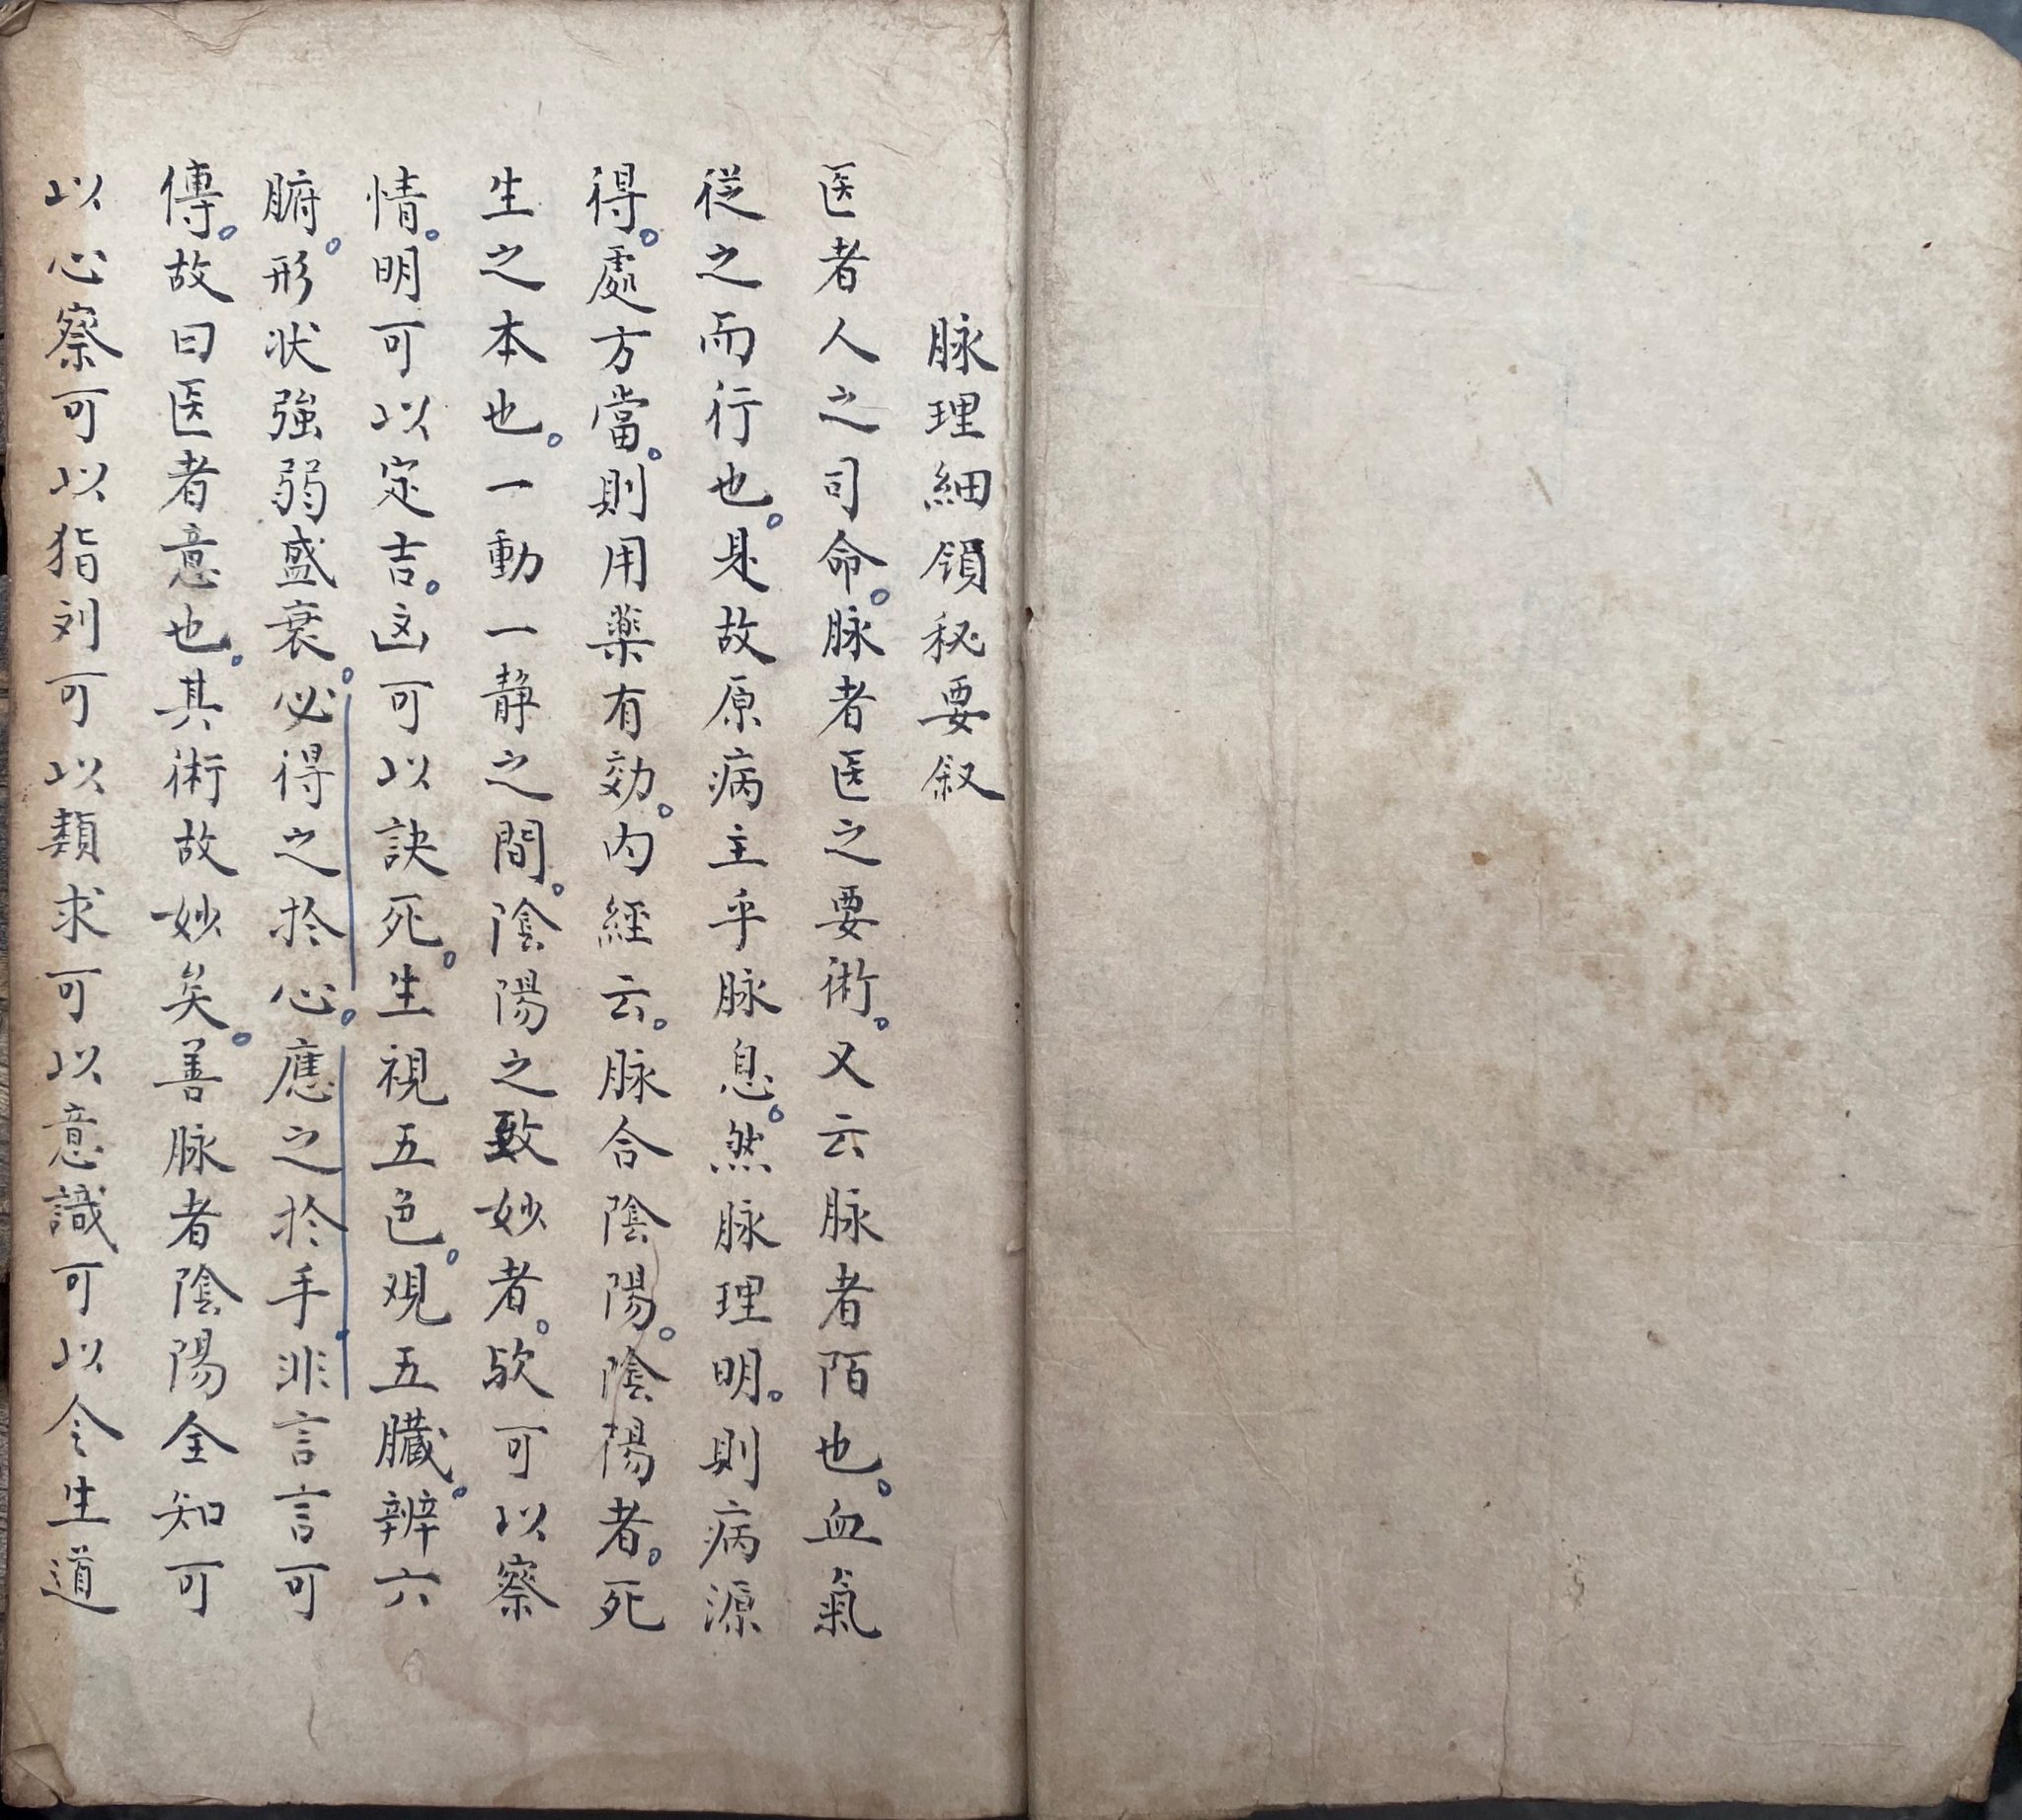 脉理細領秘要叙
医者人之司命。脉者医之要術。又云脉者陌也。血氣
從之而行也。是故原病主乎脉息。然脉理明。則病源
得。處方當。則用藥有効。内經云。脉合陰陽。陰陽者。死
生之本也。一動一静之間。陰陽之致妙者。欤可以察
情。明可以定吉。凶可以訣死。生視五色。观五臓。辨六
腑。形状強弱盛衰。必得之於心。應之於手。非言言可
傳。故曰医者意也。其術故妙矣。善脉者陰陽全知可
以心察可以指列可以類求可以意識可以令生道